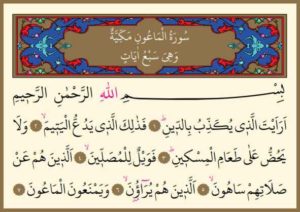 سُورَةُ الْمَاعُونِ مَكِّيَّةٌ
وَهِيَ سَبْعُ اٰيَاتٍ
بِسْمِ اللّٰهِ الرَّحْمٰنِ الرَّحٖيمِ
اَرَاَيْتَ الَّذٖي يُكَذِّبُ بِالدّٖينِؕ ﴿١﴾ فَذٰلِكَ الَّذٖي يَدُعُّ الْيَتٖيمَۙ ﴿٢﴾ وَلَا
يَحُضُّ عَلٰى طَعَامِ الْمِسْكٖينِؕ ﴿٣﴾ فَوَيْلٌ لِلْمُصَلّٖينَۙ ﴿٤﴾ اَلَّذٖينَ هُمْ عَنْ
صَلَاتِهِمْ سَاهُونَۙ ﴿٥﴾ اَلَّذٖينَ هُمْ يُرَٓاؤُ۫نَۙ ﴿٦﴾ وَيَمْنَعُونَ الْمَاعُونَ ﴿٧﴾